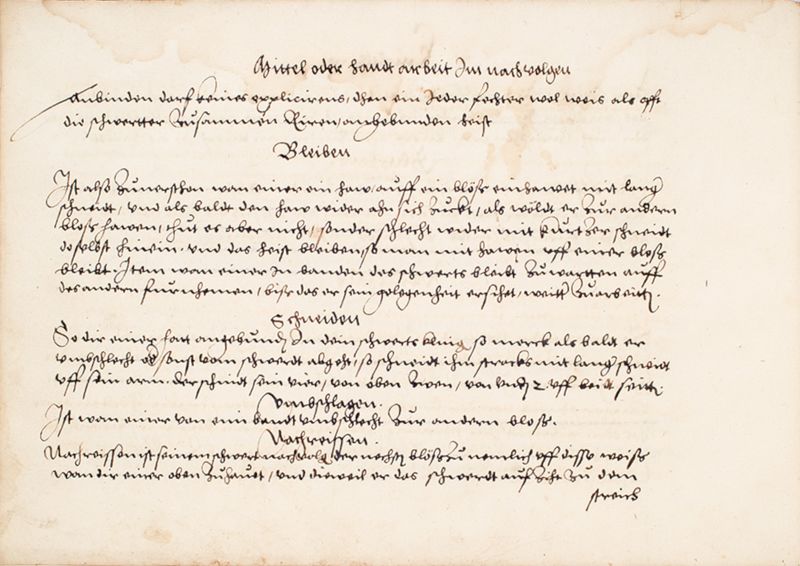 Mittel oder handt arbeit Im nachvolgen
Anbinden darf keines explicirens, dhen ein Jeder fechter wol weis als offt
die schwertter Zusammen Riren, angebunden heist
Bleiben
Ist also Zuuerston wan einer ein haw, auff ein blösse einhawet mit lang
schneidt, vnd als baldt den haw wider ahn sich Zuckt, als wöldt er Zur andern
blöss hawen, thut es aber nicht, sonder schlecht wider mit kurtzer schneidt
doselbst hinein. vnd das heist bleiben, so man mit hawen vff einer bloss
bleibt. Item wan einer in banden des schwerts bleibt Zuwartten auff
des andern furnhemen, biss das er sein gelegenheit ersihet, weitter Zuarbeitten.
Schneiden
So dir einer hart angebunden In dein schwerts kling so merck als baldt er
vmbschlecht od sonst vom schwerdt abgeht, so schneidt ihm stracks mit lang schneidt
vff sein arm. der schnidt sein vier, von oben zwen, von vnden 2. vff beid seitten.
Vmbschlagen.
Ist wan einer von eim bandt vmbschlecht Zur andern bloss.
Nachreissen.
Nachreissen ist seinem schwert nachvolg der nechsten blöss Zu nemlich vff disse weiss
wan dir einer oben Zuhauet, vnd dieweil er das schwerdt auf Ziht Zu dem
streich